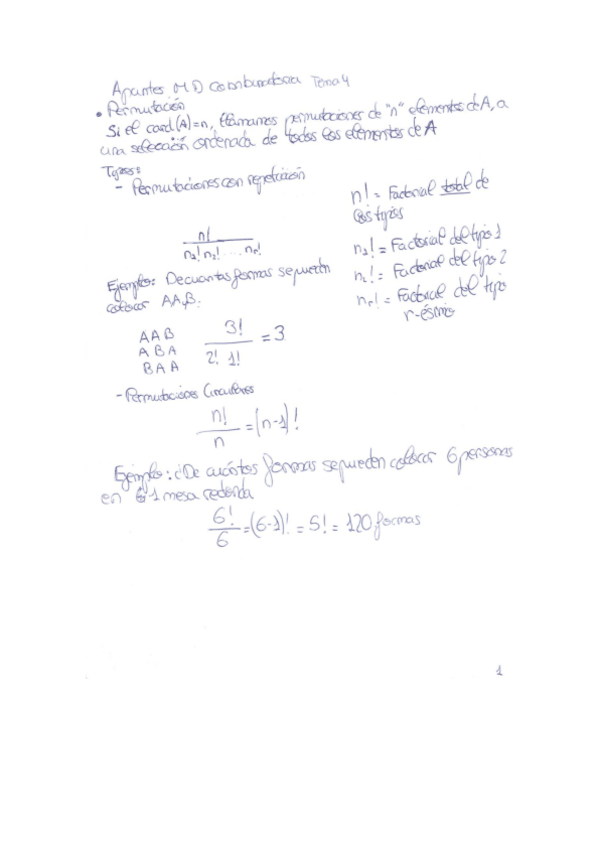 Apuntes MD Combinatoria Tema 4
• Permutación
Si el card(A)=n, llamamos permutaciones de "n" elementos de A, a
una selección ordenada de todos los elementos de A
Tipos:
- Permutaciones con repetición
n! = Factorial total de
los tipos
n!
n1! n2! ... nr!
n1! = Factorial del tipo 1
n2! = Factorial del tipo 2
nr! = Factorial del tipo
r-ésimo
Ejemplo: De cuantas formas se pueden
colocar AA,B:
AAB
ABA
BAA
3!
2! 1!
= 3
- Permutaciones Circulares
n!
n
= (n-1)!
Ejemplo: ¿De cuántas formas se pueden colocar 6 personas
en 1 mesa redonda
6!
6
= (6-1)! = 5! = 120 formas
1